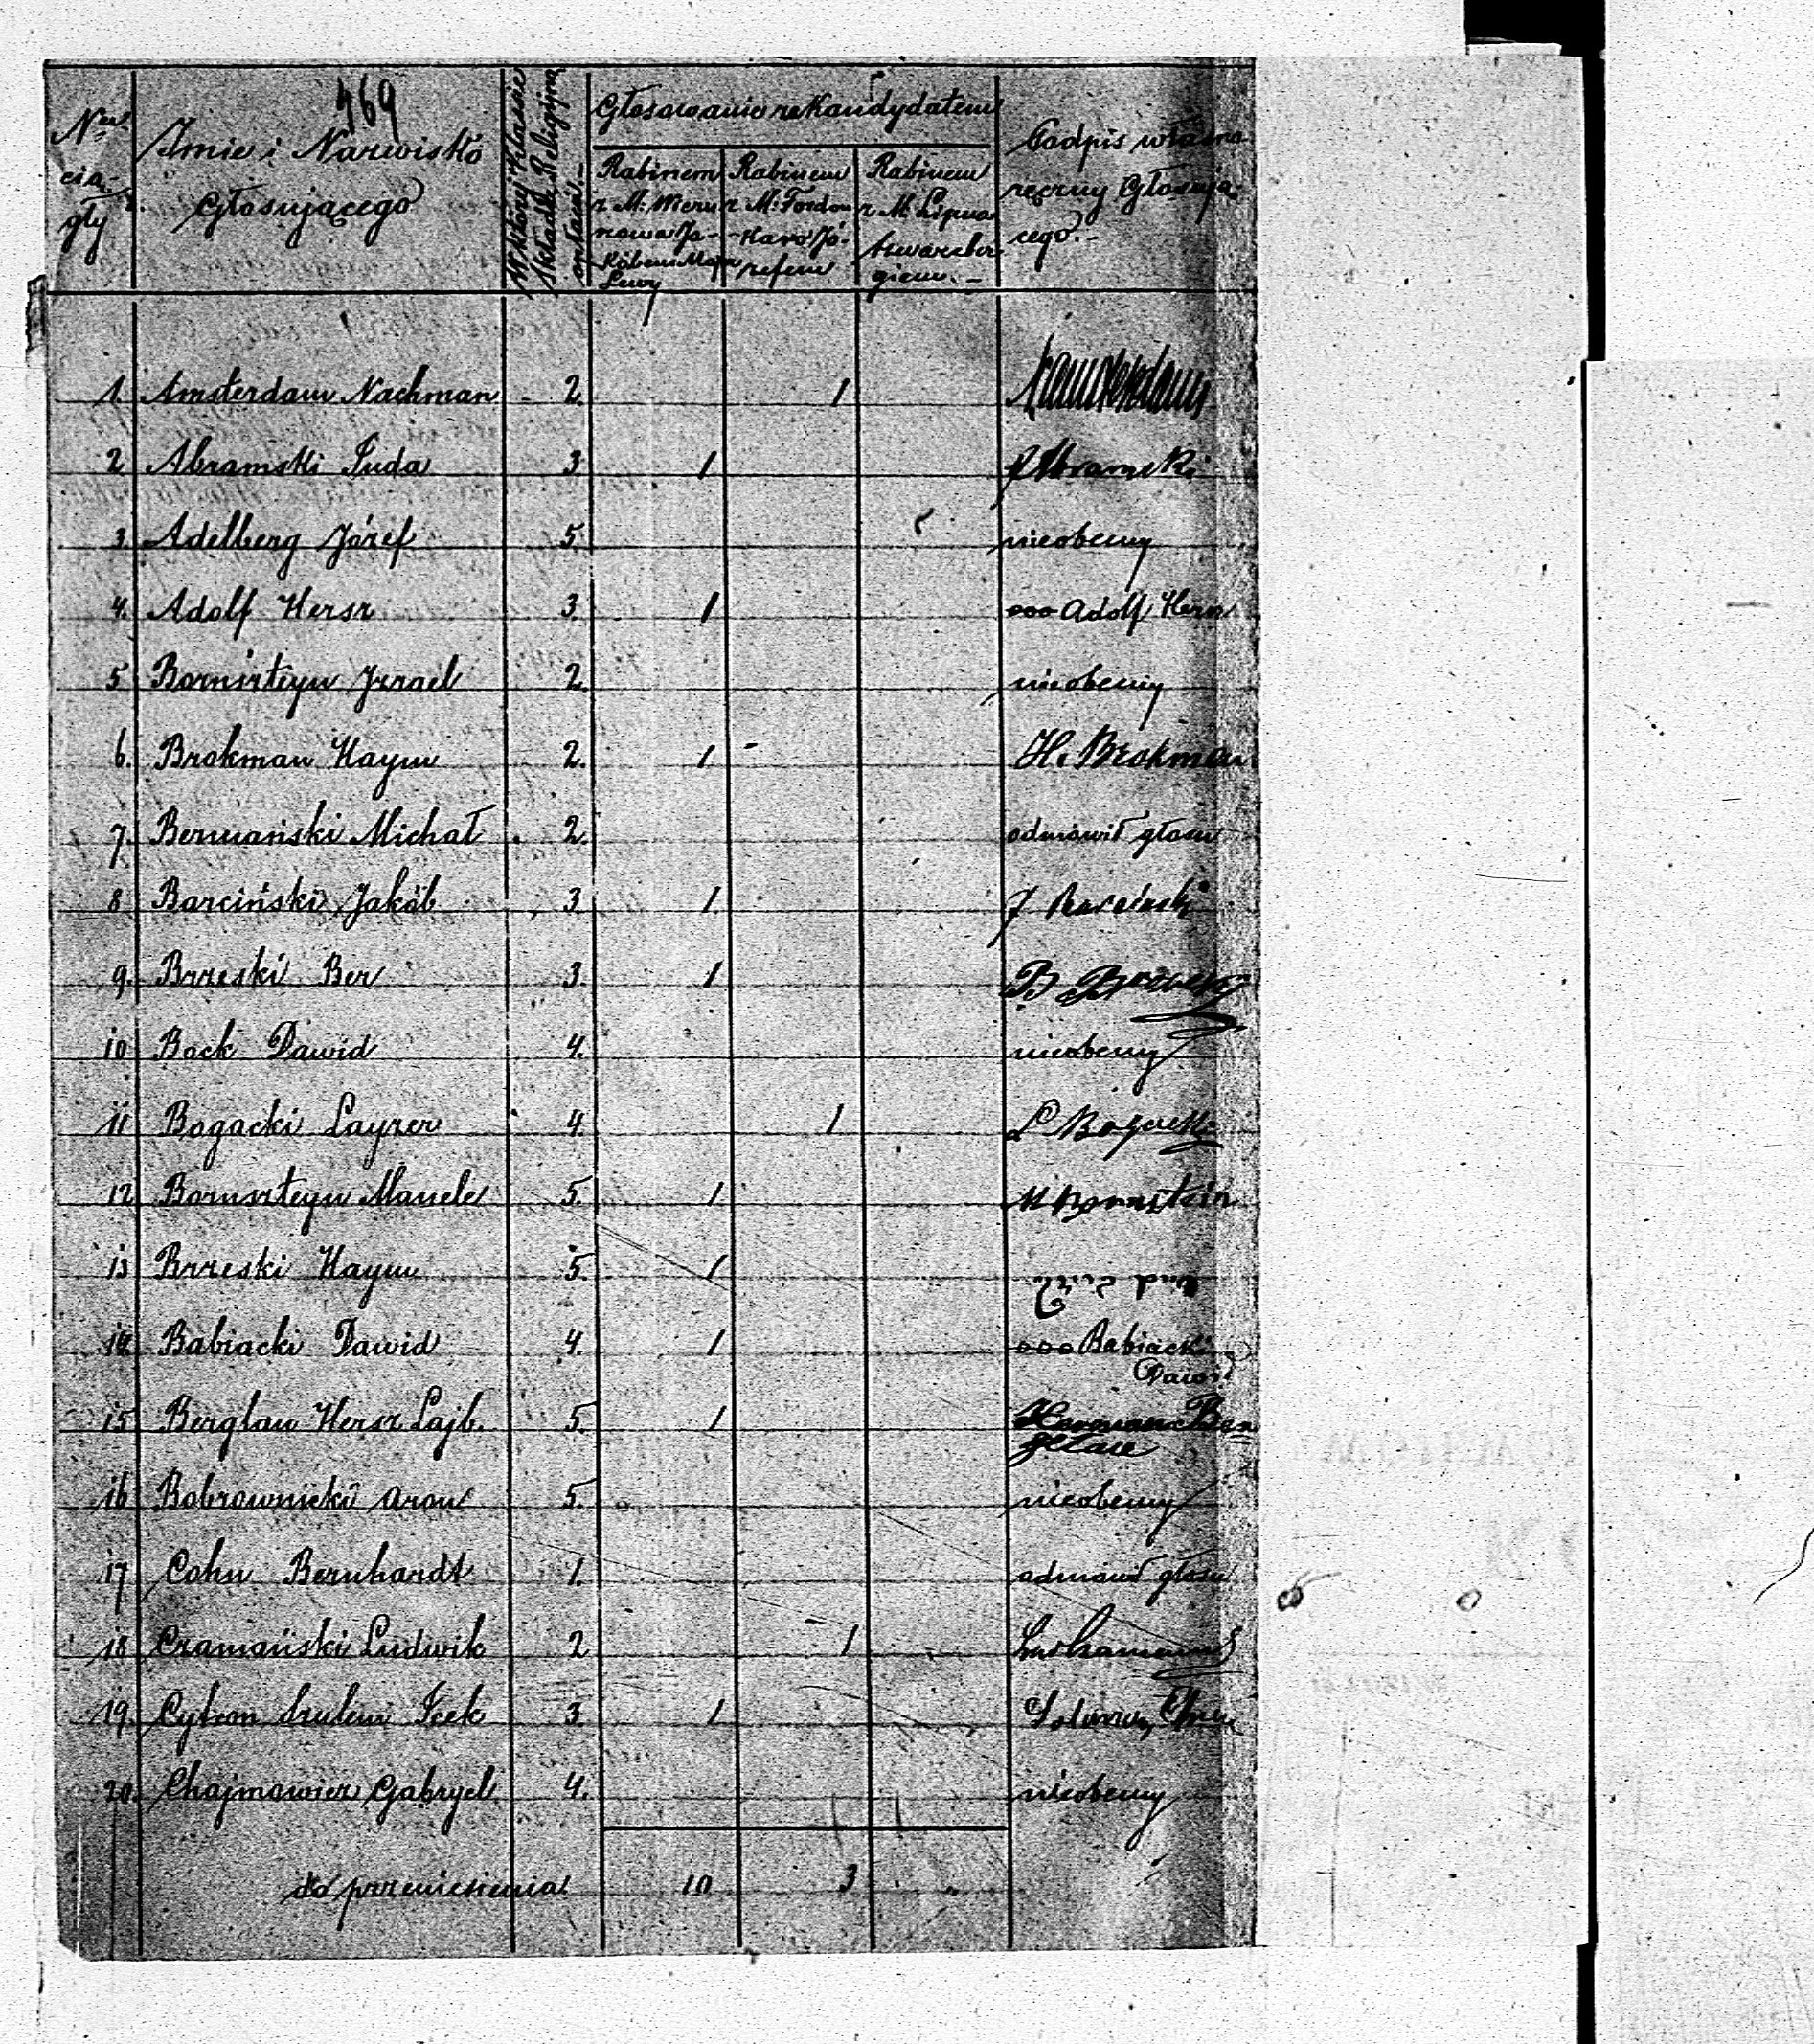 469
Nr
cią-
gły
Imie i Nazwisko
Głosującego
W którey klassie
składki Religijnej
ostaie.-
Głosowanie za Kandydatem
Rabinem
z M:
nowa Ja-
kóbem Majer
Lewy
Rabinem
z M: Fordon
Karo Jó-
zefem
Rabinem
z M: Lipna
Szwarcber
giem.-
Podpis własno
ręczny Głosują-
cego.-
1. Amsterdam Nachman 2. 1
2 Abramski Juda 3 1 J Abramski
3. Adelberg Józef 5. nieobecny
4. Adolf Hersz 3. 1 ooo Adolf Hersz
5 Bornszteyn Jzrael 2. nieobecny
6. Brokman Haym 2. 1 H. Brokman
7. Bermański Michał 2. odmówił głosu
8 Barciński Jakób 3. 1. J Barcinski
9. Brzeski Ber 3. 1 B
10 Bock Dawid 4. nieobecny
11 Bogacki Layzer 4. 1 L Bogacki
12 Bornszteyn Manele 5. 1 M Bornstein
13 Brzeski Haym 5. 1
14. Babiacki Dawid 4. 1 ooo Babiacki
Dawid
15 Berglau Hersz Lajb. 5. 1 Herman Ber
glau
16 Bobrownicki Aron 5. nieobecny
17 Cohn Bernhardt 1. odmówił głosu
18 Czamański Ludwik 2 1
19. Cytron Szulem Icek 3. 1
20. Chajmowicz Gabryel 4. nieobecny
do przeniesienia 10 3 "